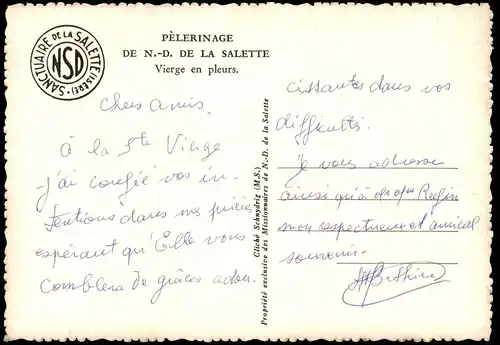 PÈLERINAGE
DE N.-D. DE LA SALETTE
Vierge en pleurs.
SANCTUAIRE DE LA SALETTE (ISÈRE)
NSD
Chers amis,
à la Ste Vierge
j'ai confié vos in-
tentions dans mes prières
espérant qu'Elle vous
comblera de grâces adou-
Cliché Schnydrig (M.S.)
Propriété exclusive des Missionnaires de N.-D. de la Salette
cissantes dans vos
difficultés.
Je vous adresse
ainsi qu'à
mon respectueux et amical
souvenir.